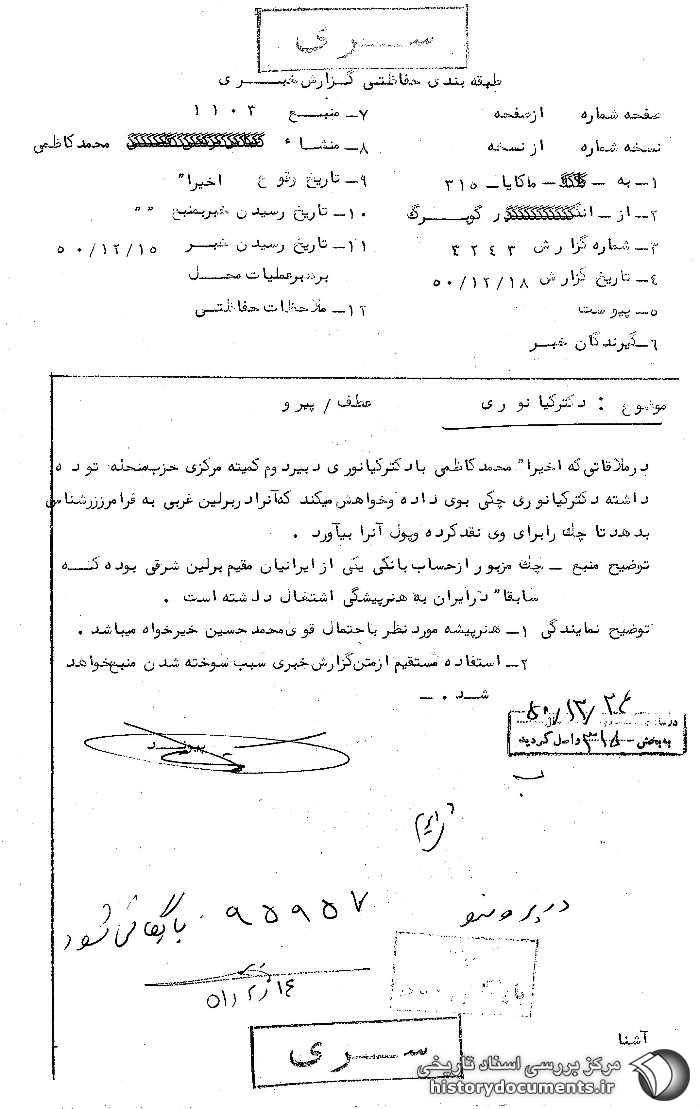 ســری
طبقه بندی حفاظتی گـزارش خبـــری
صفحه شماره از صفحه
نسخه شماره از نسخه
۱ـ به ـ ـ ماکایا ـ ۳۱۵
۲ـ از ـ در گوبــرگ
۳ـ شماره گزارش ۴۲۴۳
۴ـ تاریخ گزارش ۵۰/۱۲/۱۸
۵ـ پیوست
۶ـ گیرندگان خبر
۷ـ منبـــع ۱۱۰۳
۸ـ منشاء محمد کاظمی
۹ـ تاریخ وقوع اخیرا"
۱۰ـ تاریخ رسیدن خبر بمنبع " "
۱۱ـ تاریخ رسیدن خبـر ۵۰/۱۲/۱۵
برهبر عملیات محــل
۱۲ـ ملاحظات حفاظتـی
موضوع : دکتر کیانوری عطف / پیرو
در ملاقاتی که اخیرا" محمد کاظمی با دکتر کیانوری دبیر دوم کمیته مرکزی حزب منحله توده
داشته دکتر کیانوری چکی بوی داده و خواهش میکند که آنرا در برلین غربی به فرامرزز رشناس
بدهد تا چک را برای وی نقد کرده و پول آنرا بیآورد .
توضیح منبع ـ چک مزبور از حساب بانکی یکی از ایرانیان مقیم برلین شرقی بوده کــه
سابقا" در ایران به هنرپیشگی اشتغال داشته است .
توضیح نمایندگی ۱ـ هنرپیشه مورد نظر باحتمال قوی محمد حسین خیرخواه میباشد .
۲ـ استفاده مستقیم از متن گزارش خبری سبب سوخته شدن منبع خواهد
شد . ـ
۵۰/۱۲/۲۴
به بخش - ۳۱۵ واصل گردید
در پرونده ۹۵۹۵۷ بایگانی شود
۵۱/۲/۱۴
آشنا
ســری
مرکز بررسی اسناد تاریخی
historydocuments.ir